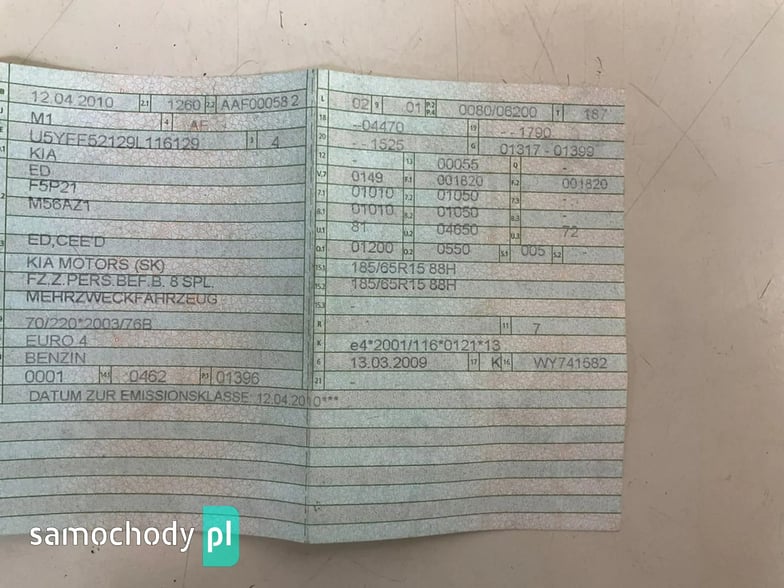 12.04.2010 2.1 1260 2.2 AAF00058 2
M1 4 AF
U5YFF52129L116129 3 4
KIA
ED
F5P21
M56AZ1
ED,CEE'D
KIA MOTORS (SK)
FZ.Z.PERS.BEF.B. 8 SPL.
MEHRZWECKFAHRZEUG
70/220*2003/76B
EURO 4
BENZIN
0001 14.1 0462 P.3 01396
DATUM ZUR EMISSIONSKLASSE: 12.04.2010***
L 02 9 01 P.2 P.4 0080/06200 T 187
18 --04470 19 - - 1790
20 - - 1525 G 01317 - 01399
12 - 13 00055 Q -
V.7 0149 F.1 001820 F.2 001820
7.1 01010 7.2 01050 7.3 -
8.1 01010 8.2 01050 8.3 -
U.1 81 U.2 04650 U.3 72
O.1 01200 O.2 0550 S.1 005 S.2 -
15.1 185/65R15 88H
15.2 185/65R15 88H
15.3 -
R - 11 7
K e4*2001/116*0121*13
6 13.03.2009 17 K 16 WY741582
21 -
samochody pl